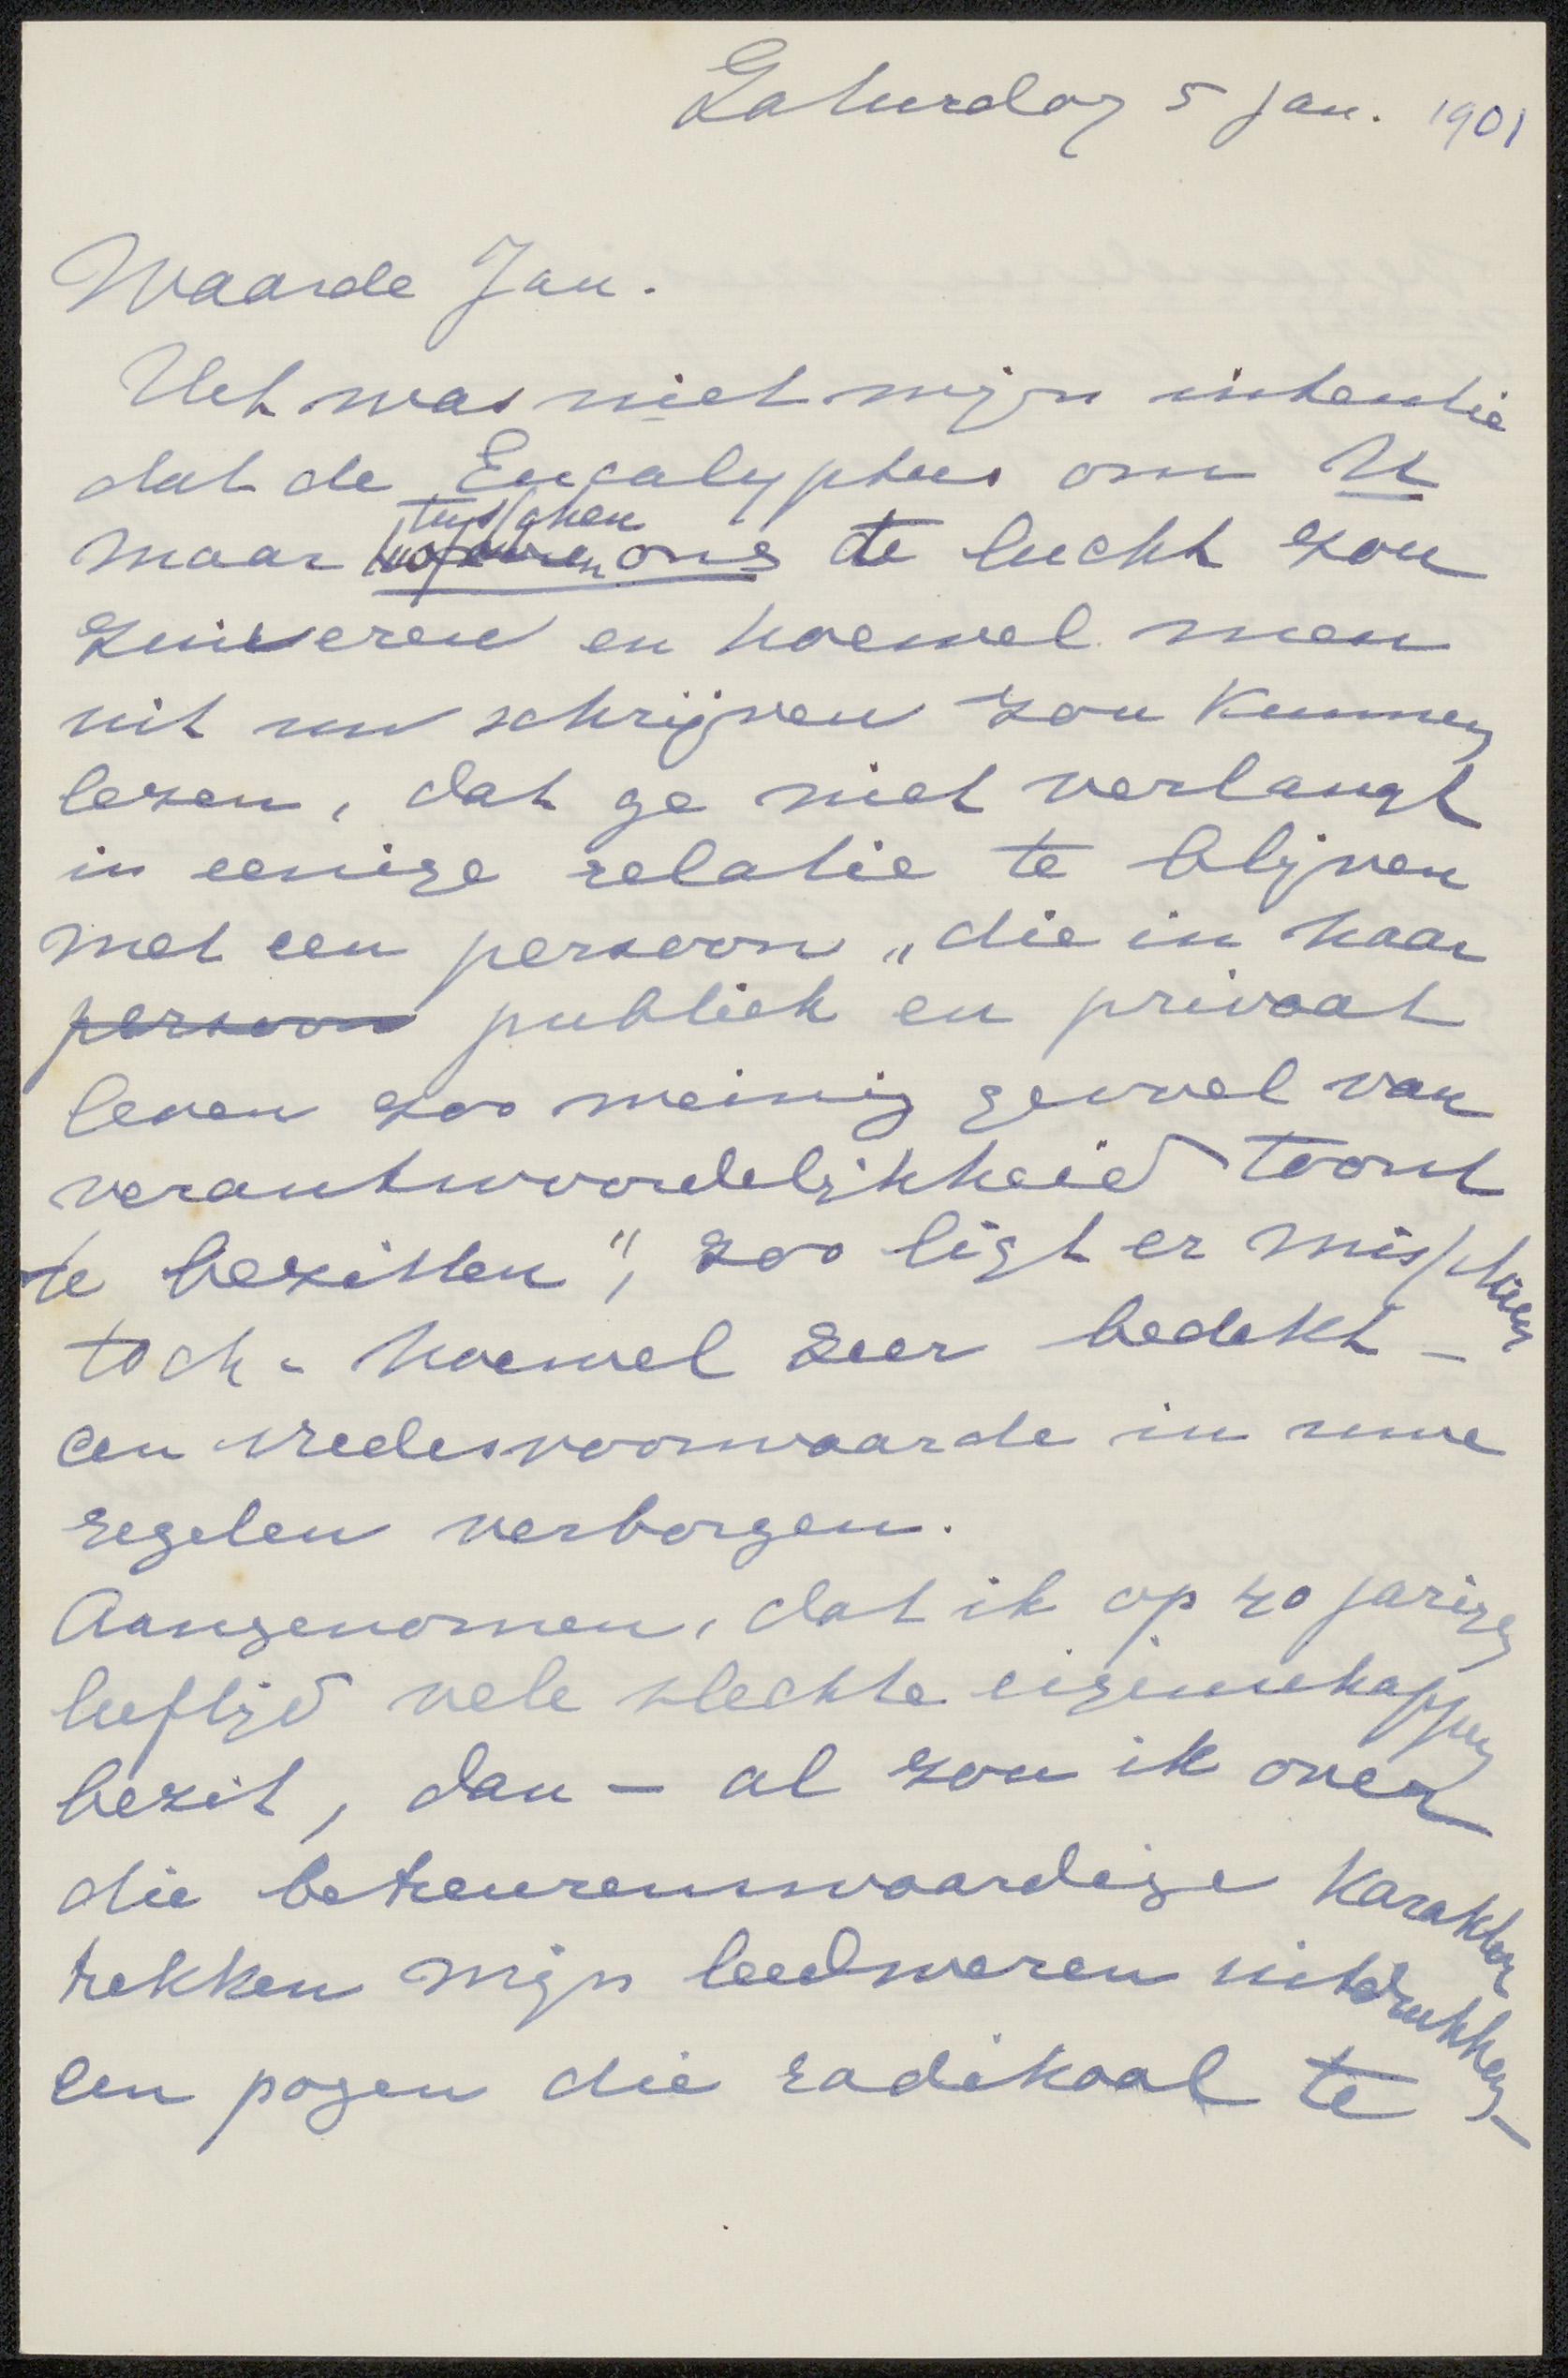 Zaturdag 5 Jan. 1901
Waarde Jan.
Het was niet mijn intentie
dat de Eucalyptus om U
tusschen
maar ons de lucht zou
zuiveren en hoewel men
uit uw schrijven zou kunnen
lezen, dat ge niet verlangt
in eenige relatie te blijven
met een persoon „die in haar
persoon publiek en privaat
leven zoo weinig gevoel van
verantwoordelijkheid toont
te bezitten", zoo ligt er misschien
toch - hoewel zeer bedekt -
een vredesvoorwaarde in uwe
regelen verborgen.
Aangenomen, dat ik op 40 jarigen
leeftijd vele slechte eigenschappen
bezit, dan - al zou ik over
die betreurenswaardige karakter
trekken mijn leedwezen uitdrukken -
een pogen die radikaal te